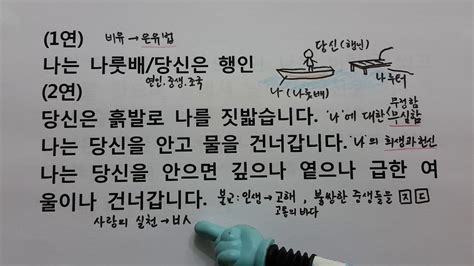 (1연) 비유→은유법
당신(행인)
나는 나룻배/당신은 행인
나루터
연인, 중생, 조국
나(나룻배)
(2연)
무정함
당신은 흙발로 나를 짓밟습니다. '나'에 대한 무심함
나는 당신을 안고 물을 건너갑니다. '나'의 희생과 헌신
나는 당신을 안으면 깊으나 옅으나 급한 여
울이나 건너갑니다. 불교: 인생→고해, 불쌍한 중생들을 ㅈㄷ
사랑의 실천→ㅂㅅ 고통의 바다